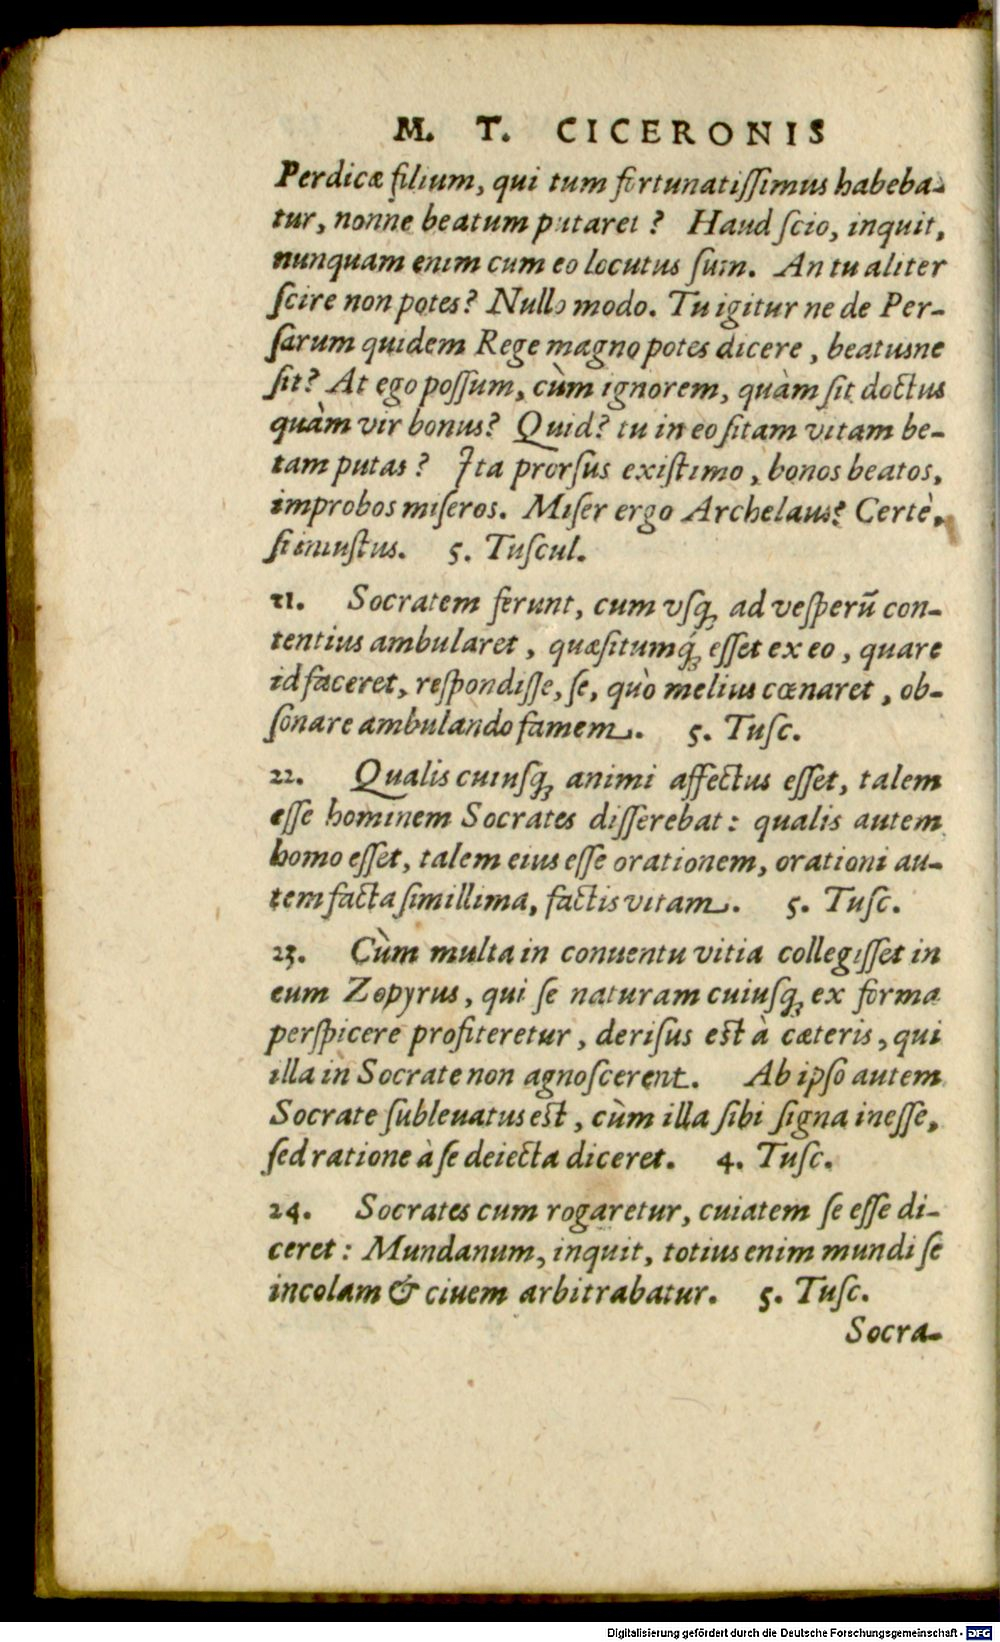 M. T. CICERONIS
Perdicæ filium, qui tum fortunatiſſimus habeba-
tur, nonne beatum putaret? Haud ſcio, inquit,
nunquam enim cum eo locutus ſum. An tu aliter
ſcire non potes? Nullo modo. Tu igitur ne de Per-
ſarum quidem Rege magno potes dicere, beatusne
ſit? At ego poſſum, cùm ignorem, quàm ſit doctus
quàm vir bonus? Quid? tu in eo ſitam vitam be-
tam putas? Ita prorſus exiſtimo, bonos beatos,
improbos miſeros. Miſer ergo Archelaus? Certè,
ſi iniuſtus. 5. Tuſcul.
21. Socratem ferunt, cum vſq; ad veſperũ con-
tentius ambularet, quæſitumq́; eſſet ex eo, quare
id faceret, reſpondiſſe, ſe, quò melius cœnaret, ob-
ſonare ambulando famem. 5. Tuſc.
22. Qualis cuiuſq; animi affectus eſſet, talem
eſſe hominem Socrates diſſerebat: qualis autem
homo eſſet, talem eius eſſe orationem, orationi au-
tem facta ſimillima, factis vitam. 5. Tuſc.
23. Cùm multa in conuentu vitia collegiſſet in
eum Zopyrus, qui ſe naturam cuiuſq; ex forma
perſpicere profiteretur, deriſus eſt à cæteris, qui
illa in Socrate non agnoſcerent. Ab ipſo autem
Socrate ſubleuatus eſt, cùm illa ſibi ſigna ineſſe,
ſed ratione à ſe deiecta diceret. 4. Tuſc.
24. Socrates cum rogaretur, cuiatem ſe eſſe di-
ceret: Mundanum, inquit, totius enim mundi ſe
incolam & ciuem arbitrabatur. 5. Tuſc.
Socra-
Digitalisierung gefördert durch die Deutsche Forschungsgemeinschaft - DFG